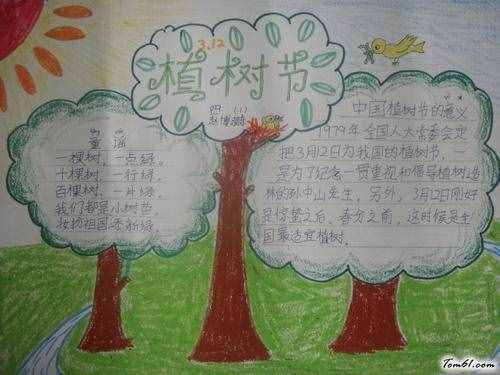 3.12
植树节
四（1）
童谣
一棵树，一点绿。
十棵树，一行绿。
百棵树，一片绿。
我们都是小树苗，
妆扮祖国添新绿。
中国植树节的意义
1979年全国人大常委会定
把3月12日为我国的植树节，
是为了纪念一贯重视和倡导植树造
林的孙中山先生，另外，3月12日刚好
是惊蛰之后，春分之前，这时候是全
国最适宜植树。
Tom61.com